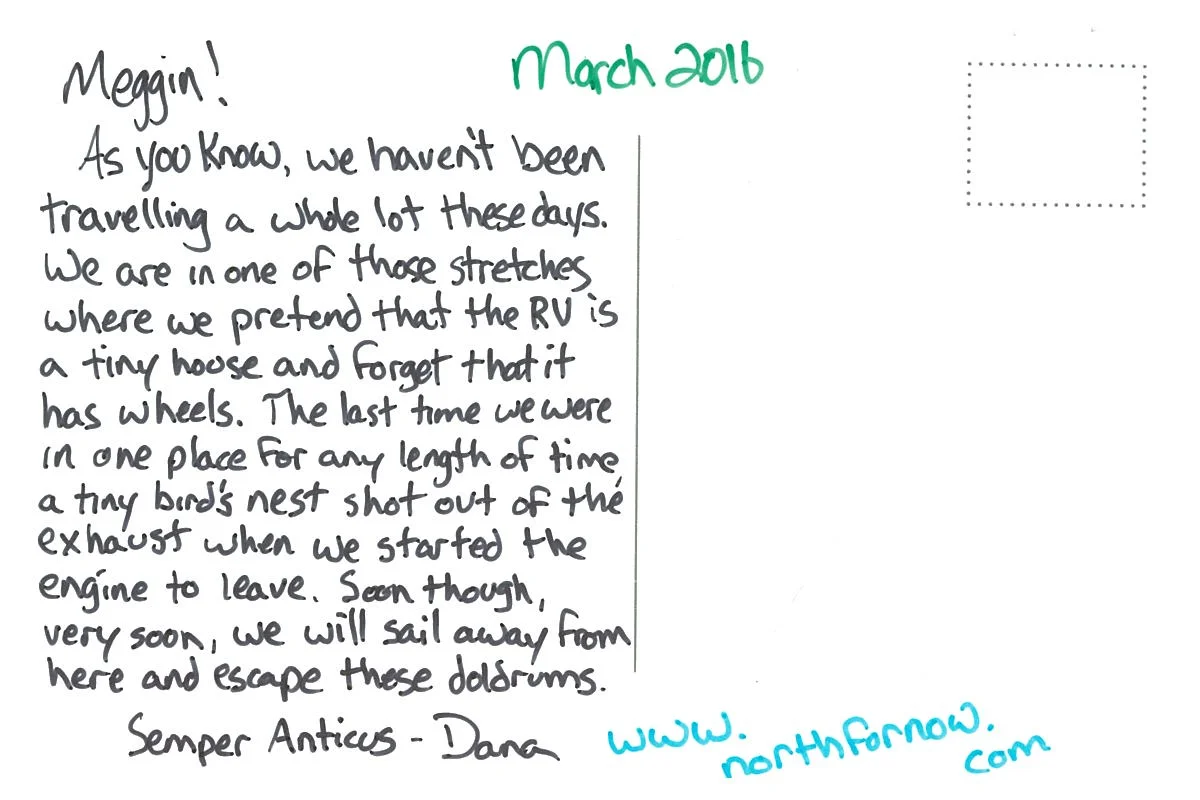 Meggin!
March 2016
As you know, we haven't been
travelling a whole lot these days.
We are in one of those stretches
where we pretend that the RV is
a tiny house and forget that it
has wheels. The last time we were
in one place for any length of time,
a tiny bird's nest shot out of the
exhaust when we started the
engine to leave. Soon though,
very soon, we will sail away from
here and escape these doldrums.
Semper Anticus - Dana
www.
northfornow.
com